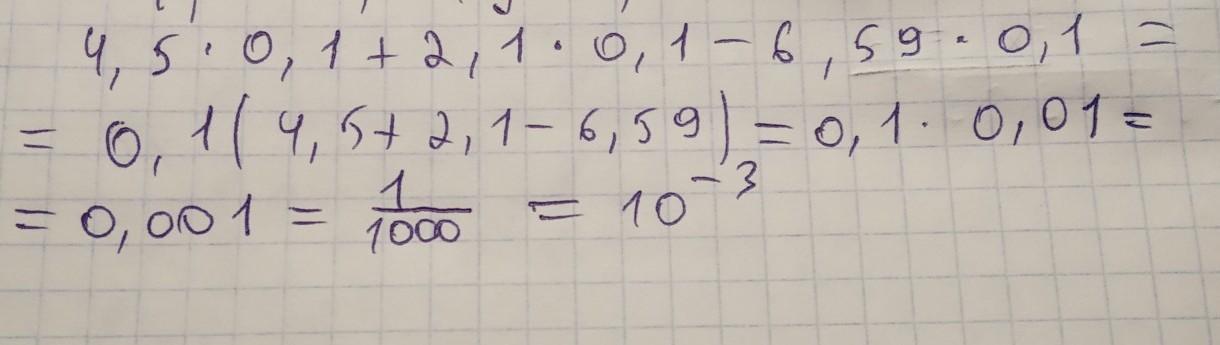 4,5·0,1+2,1·0,1-6,59·0,1 =
= 0,1(4,5+2,1-6,59)=0,1·0,01=
= 0,001 = 1/1000 = 10⁻³